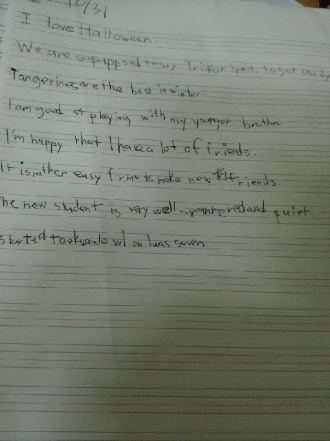 10/31
I love Halloween.
We are supuppsed today. Trikor treat, to get candy
Tangerines are the best in winter.
I am good at playing with my younger brother
I'm happy that I have a lot of friends.
It is rather easy for me to make new friends.
The new student is very well-mannered and quiet.
started taekwando when I was seven.